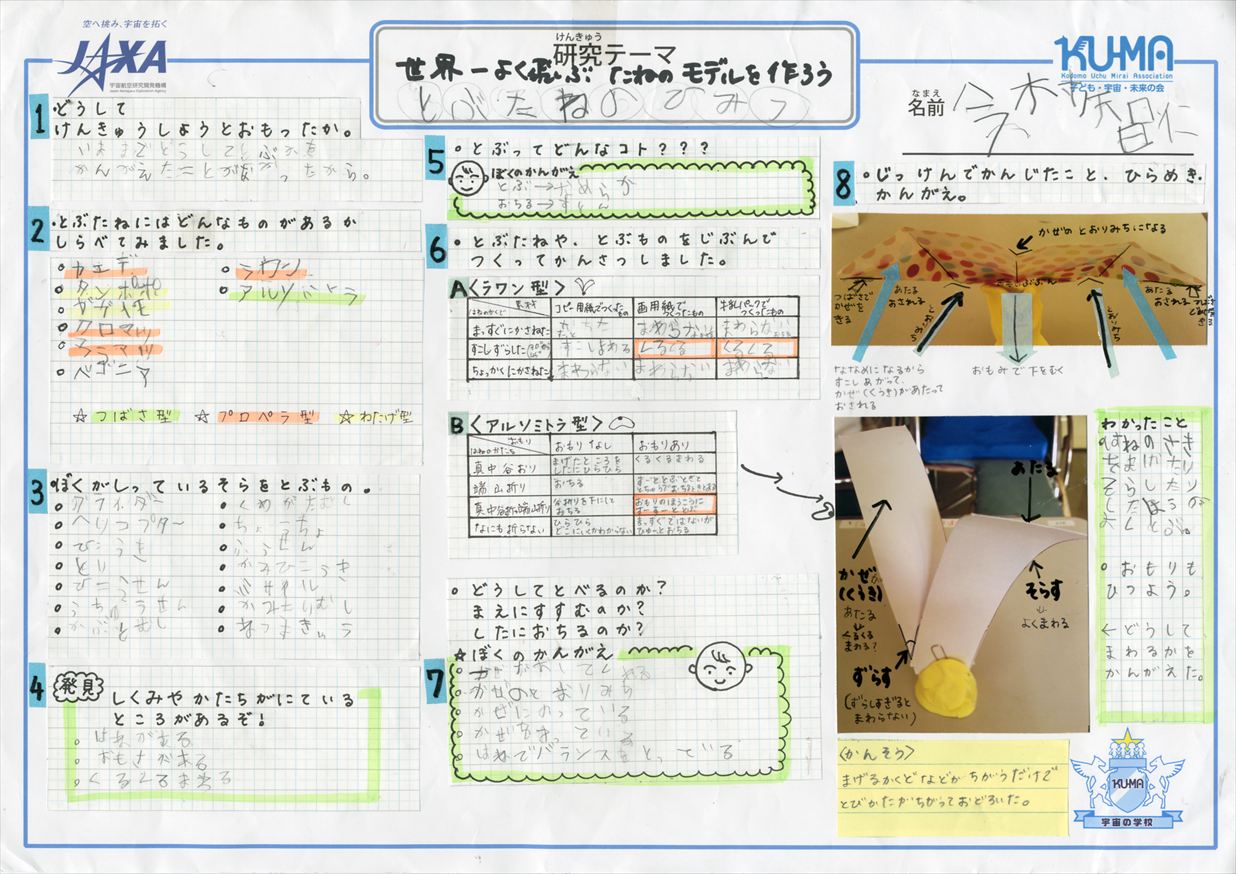 空へ挑み、宇宙を拓く
JAXA
宇宙航空研究開発機構
Japan Aerospace Exploration Agency
けんきゅう
研究テーマ
世界一よく飛ぶ たねの モデルを 作ろう
とぶたねのひみつ
KU-MA
Kodomo Uchu Mirai Association
子ども・宇宙・未来の会
なまえ
名前
1 どうして
けんきゅうしようとおもったか。
いままでどうして
かんがえたことが から。
2 ・とぶたねにはどんなものがあるか
しらべてみました。
カエデ
タンポポ
クロマツ
ベゴニア
ラワン
アルソミトラ
☆つばさ型 ☆プロペラ型 ☆わたげ型
3 ・ぼくがしっているそらをとぶもの。
グライダー
ヘリコプター
ひこうき
とり
ひこうせん
うちゅうせん
かぶとむし
くわがたむし
ちょーちょ
ふうせん
かみひこうき
ミサイル
かみきりむし
4 発見
しくみやかたちがにている
ところがあるぞ!
はねがある
おもさがある
くるくるまわる
5 ・とぶってどんなコト???
ぼくのかんがえ
とぶ→なめらか
おちる→すとん
6 ・とぶたねや、とぶものをじぶんで
つくってかんさつしました。
A〈ラワン型〉
素材
はねのかくど
コピー用紙でつくったもの
画用紙でつくったもの
牛乳パックでつくったもの
まっすぐにかさねた
おちた
まわらない
まわらない
すこしずらした
すこしまわる
くるくる
くるくる
ちょっかくにかさねた
まわらない
まわらない
まわらない
B〈アルソミトラ型〉
おもり
はねのかたち
おもりなし
おもりあり
真中谷おり
まげたところを
したにひらひら
くるくるまわる
端山折り
おちる
真中谷折り端山折り
谷折りを下にして
おちる
おもりのほうこうに
すーすーととぶ
なにも折らない
ひらひら
どこにいくかわからない
まっすぐではないが
ひゅーとおちる
・どうしてとべるのか?
まえにすすむのか?
したにおちるのか?
☆ぼくのかんがえ
7
かぜのとおりみち
かぜにのっている
かぜをきっている
はねでバランスをとっている
8 ・じっけんでかんじたこと、ひらめき、
かんがえ。
かぜのとおりみちになる
つばさで
かぜを
きる
あたる
おされる
とおりみち
とおりみち
あたる
おされる
ななめになるから
すこしあがって、
かぜ(くうき)があたって
おされる
おもみで下をむく
あたる
かぜ
(くうき)
あたる
↓
くるくる
まわる?
そらす
↓
よくまわる
ずらす
(ずらしすぎると
まわらない)
わかったこと
はねのさき
をまげたり
そらしたり
したほうが
よくとぶ。
おもりも
ひつよう。
←どうして
まわるかを
かんがえた。
〈かんそう〉
まげるかくどなどがちがうだけで
とびかたがちがっておどろいた。
KU-MA
宇宙の学校